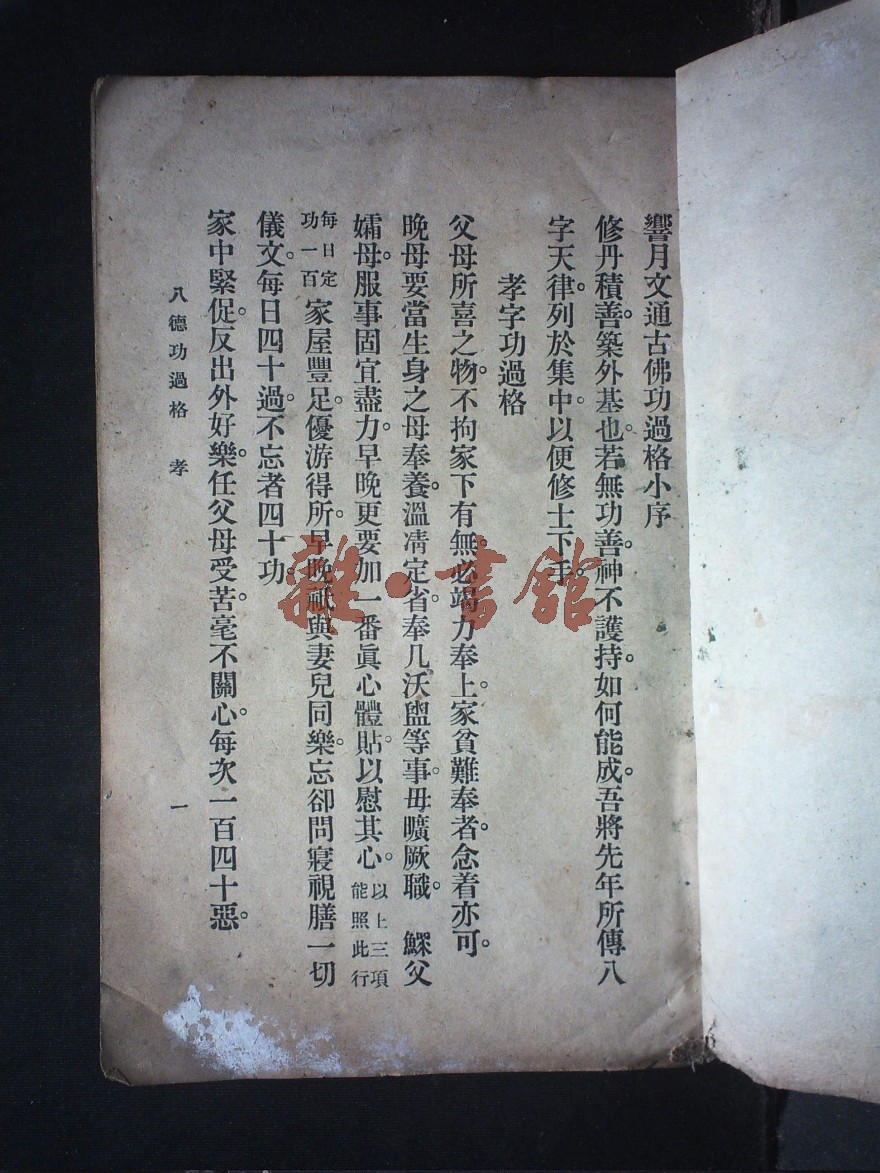 響月文通古佛功過格小序
修丹積善。築外基也。若無功善。神不護持。如何能成。吾將先年所傳八
字天律。列於集中。以便修士下手。
孝字功過格
父母所喜之物。不拘家下有無。必竭力奉上。家貧難奉者。念着亦可。
晚母要當生身之母奉養。溫凊定省。奉几沃盥等事。毋曠厥職。　鰥父
孀母。服事固宜盡力。早晚更要加一番眞心體貼。以慰其心。以上三項能照此行
每日定功一百家屋豐足。優游得所。早晚祇與妻兒同樂。忘卻問寢視膳一切
儀文。每日四十過。不忘者四十功。
家中緊促。反出外好樂。任父母受苦。毫不關心。每次一百四十惡。
八德功過格　孝　一
雜·書館